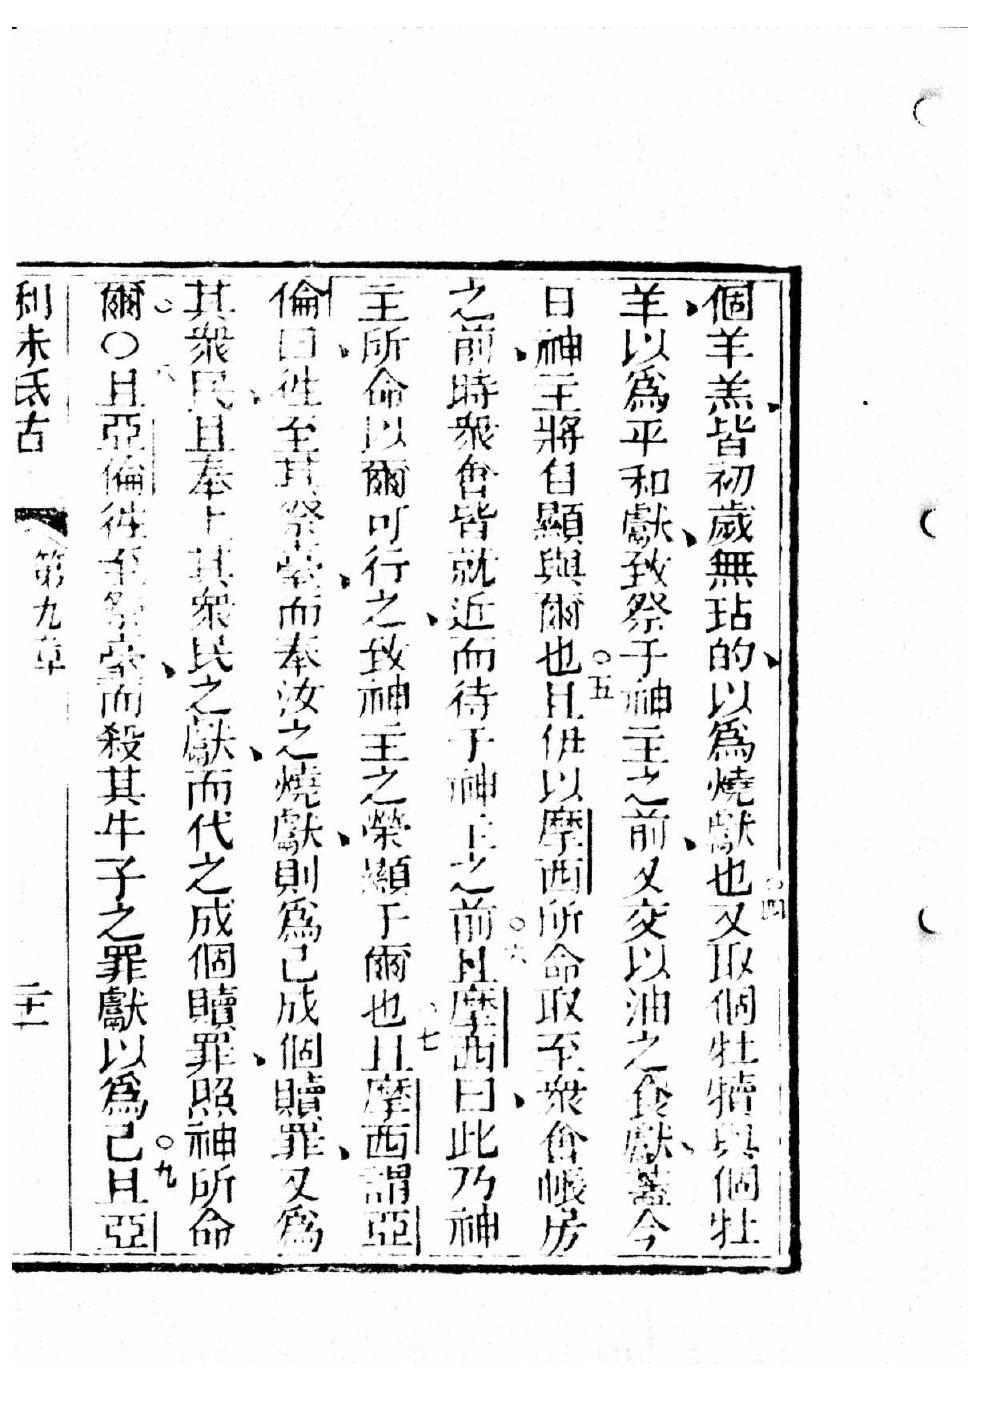 個羊羔皆初歲無玷的以爲燒獻也○四又取個牡犢與個牡
羊以爲平和獻致祭于神主之前又交以油之食獻蓋今
日神主將自顯與爾也○五且伊以摩西所命取至衆會帳房
之前時衆會皆就近而待于神主之前○六且摩西曰此乃神
主所命以爾可行之致神主之榮顯于爾也○七且摩西謂亞
倫曰徃至其祭臺而奉汝之燒獻則爲己成個贖罪又爲
其衆民且奉上其衆民之獻而代之成個贖罪照神所命
爾○八○且亞倫徃至祭臺而殺其牛子之罪獻以爲己○九且亞
利未氐古 第九章 二十一